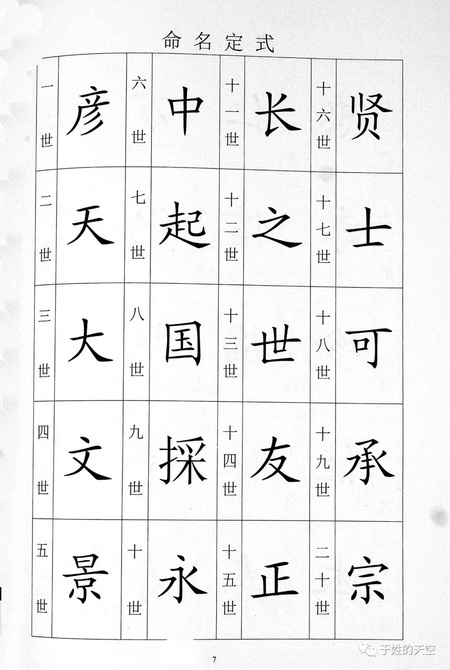 命名定式
一世 彦 六世 中 十一世 长 十六世 贤
二世 天 七世 起 十二世 之 十七世 士
三世 大 八世 国 十三世 世 十八世 可
四世 文 九世 採 十四世 友 十九世 承
五世 景 十世 永 十五世 正 二十世 宗
7
于姓的天空